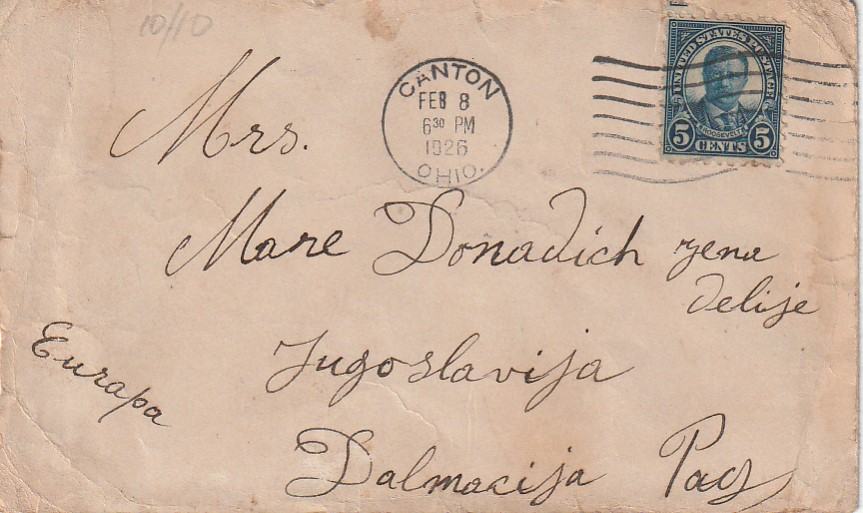 10/10
UNITED STATES POSTAGE
ROOSEVELT
5 CENTS 5
CANTON
FEB 8
6 30 PM
1926
OHIO.
Mrs.
Mare Donadich zena
delije
Jugoslavija
Europa
Dalmacija Pag